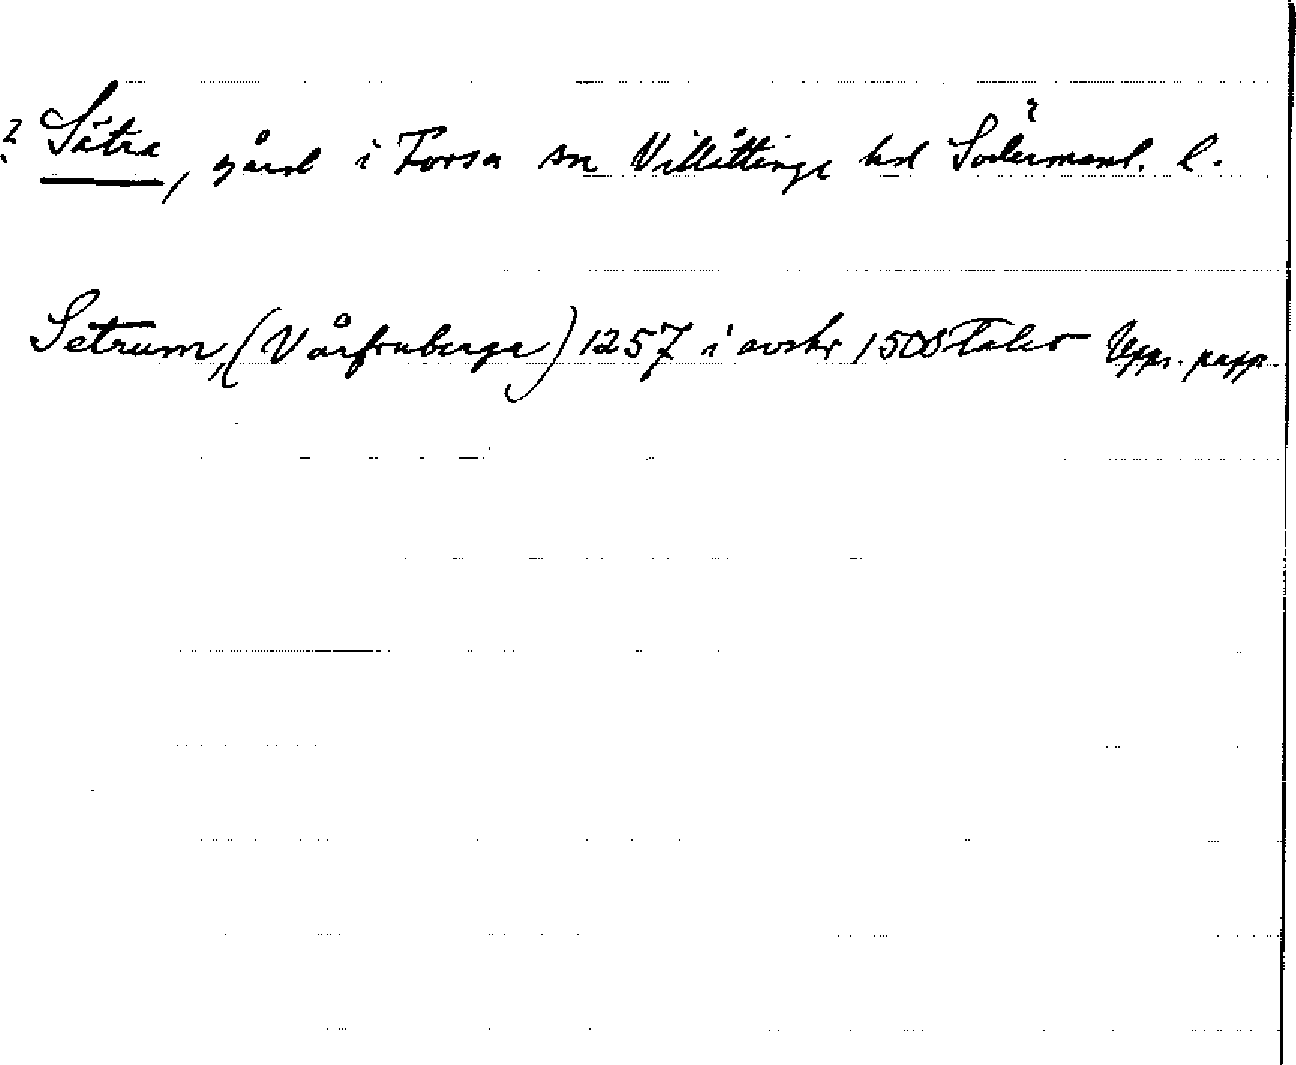 ? Sätra, gård i Forsa sn Villåttinge hd Södermanl. l.
Setrum, (Vårfruberga) 1257 i avskr 1500Talet Upps. papp.